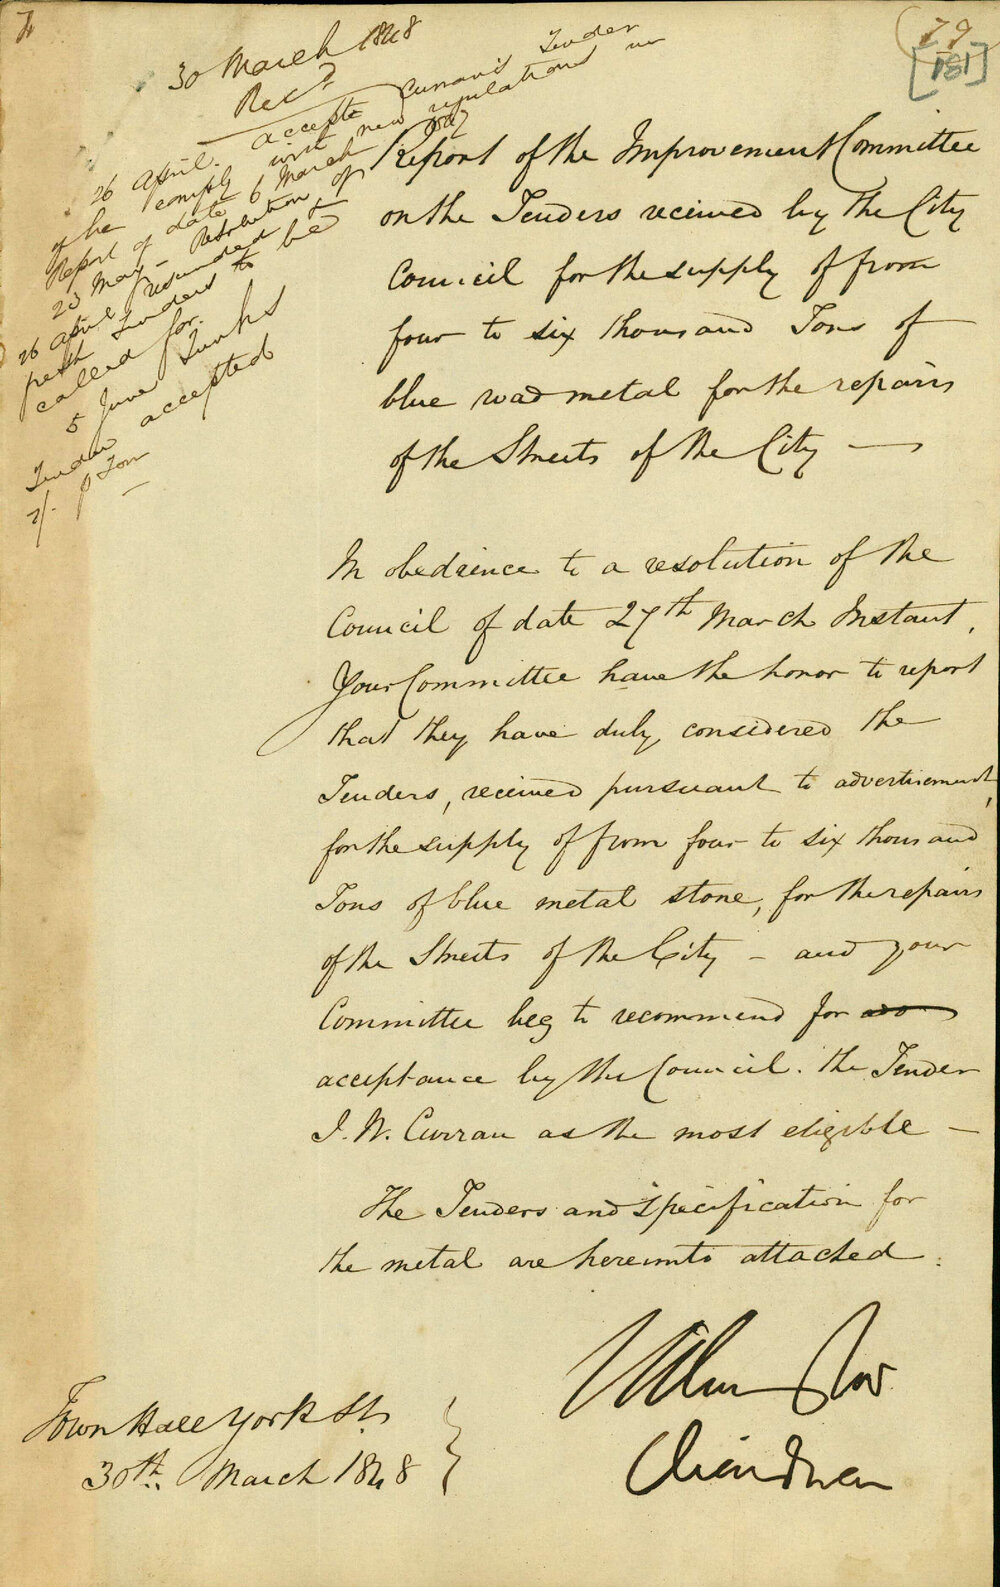 30 March 1848
Recd
26 April. accepts Curran's Tender
if he comply with new regulations in
Report of date 6 March
23 May - Resolution of
26 April rescinded &
fresh Tenders to be
called for.
5 June
Tender accepted
7/. p Ton
79
[181]
Report of the Improvement Committee
on the Tenders received by the City
Council for the supply of from
four to six thousand Tons of
blue road metal for the repairs
of the Streets of the City —
In obedience to a resolution of the
Council of date 27th March Instant,
Your Committee have the honor to report
that they have duly considered the
Tenders, received pursuant to advertisement,
for the supply of from four to six thousand
Tons of blue metal stone, for the repairs
of the Streets of the City - and your
Committee beg to recommend for
acceptance by the Council. the Tender
J. W. Curran as the most eligible —
The Tenders and Specification for
the metal are hereunto attached.
Chairman
Town Hall York St.
30th March 1848